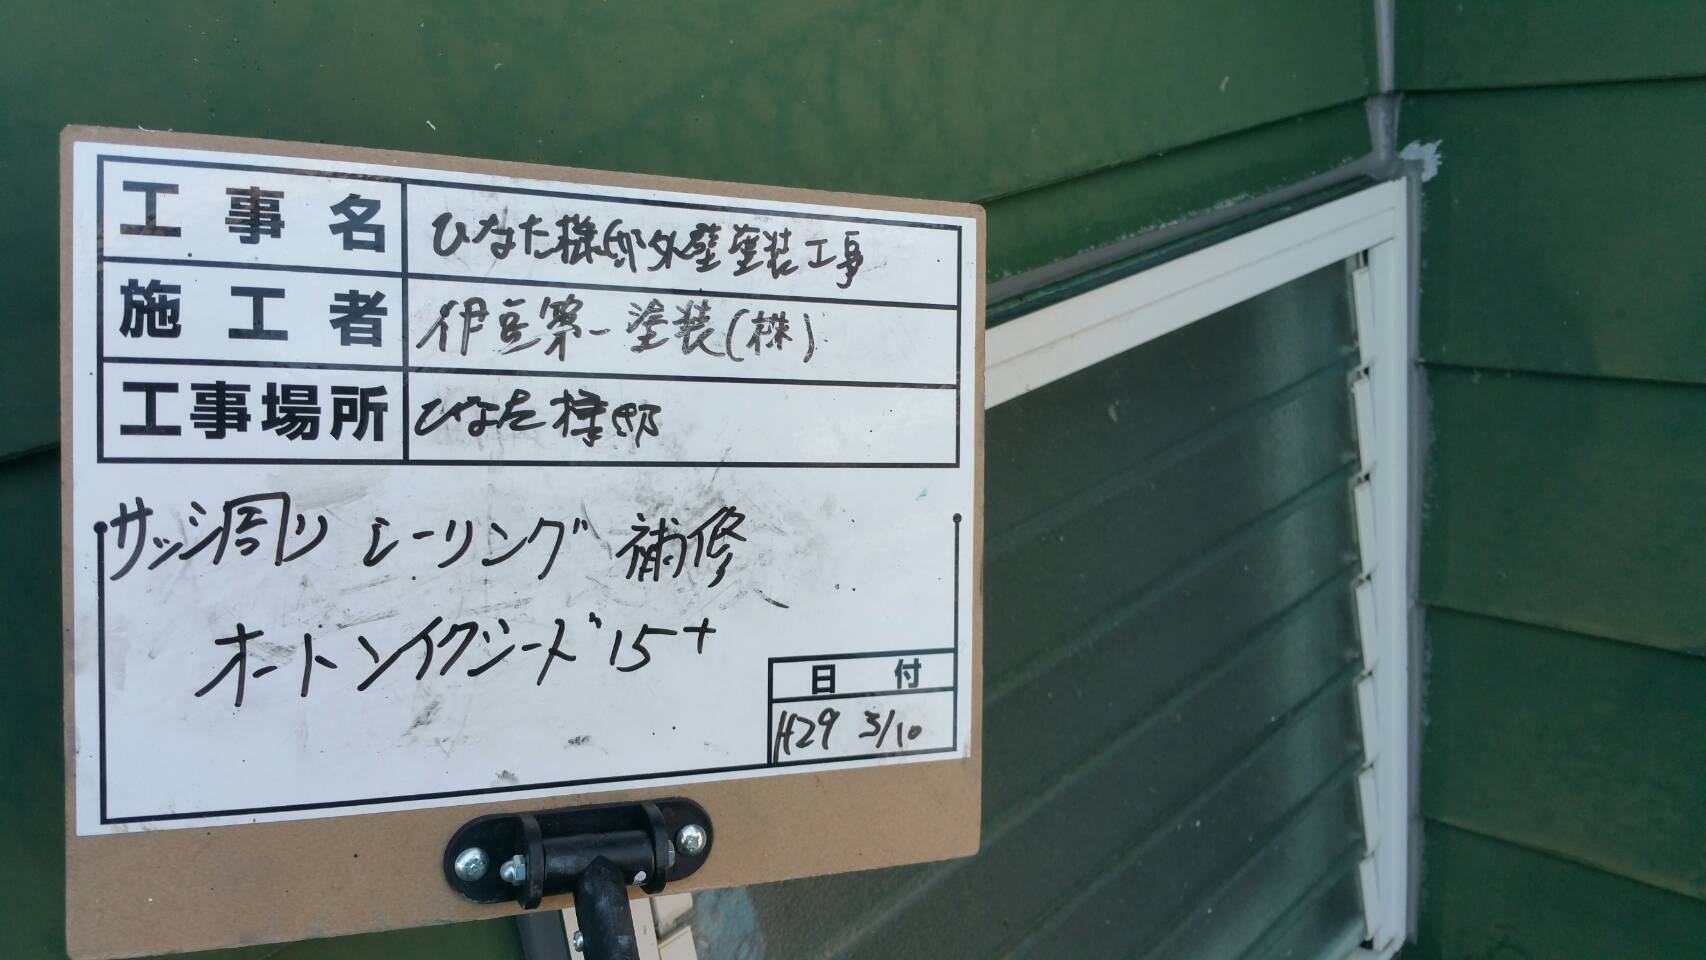 工事名 ひなた様邸外壁塗装工事
施工者 伊豆第一塗装(株)
工事場所 ひなた様邸
サッシ周り シーリング補修
オートンイクシード15+
日付
H29 3/10